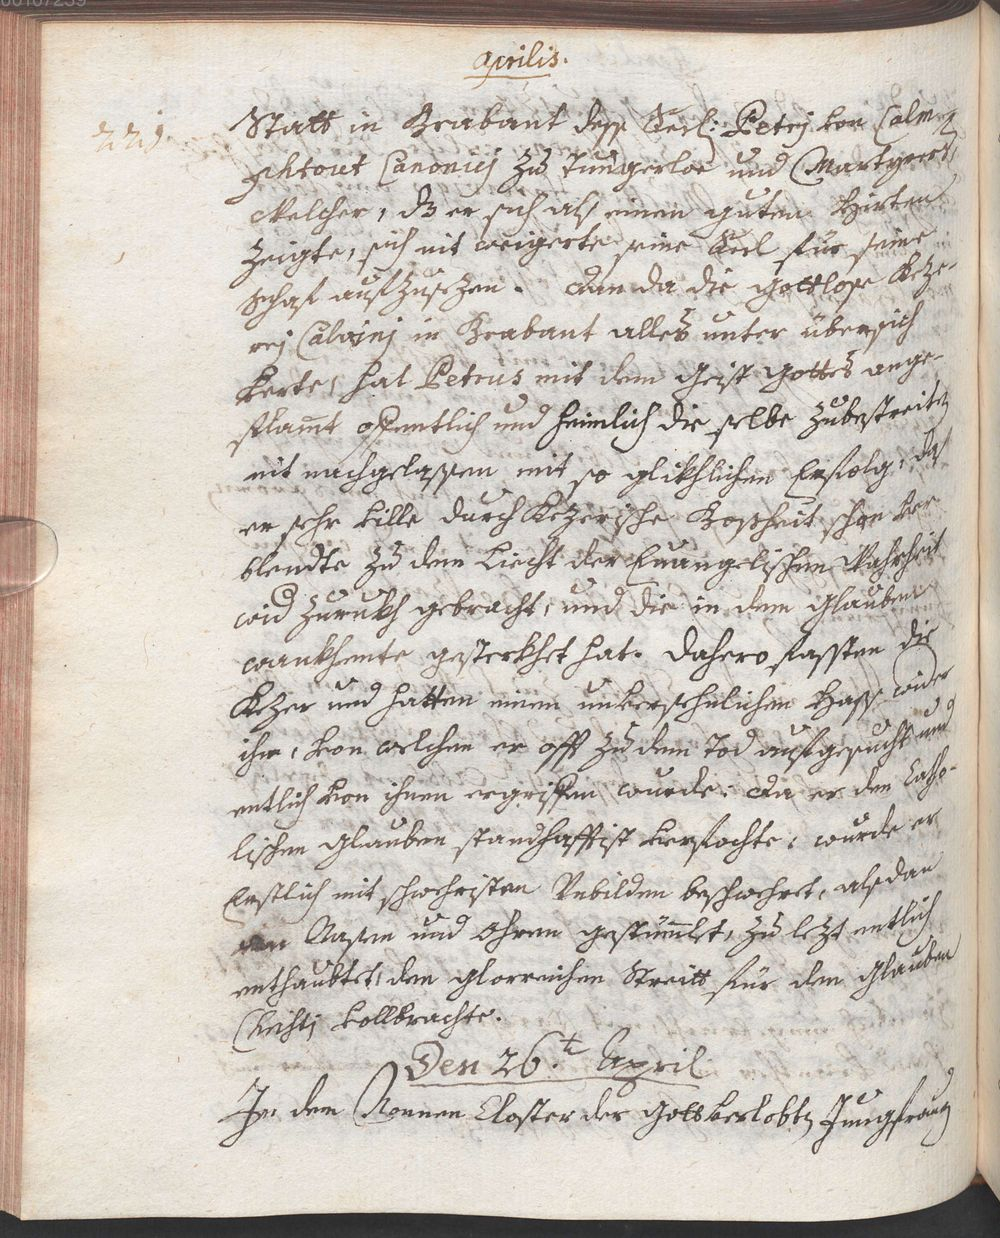 00107239
Aprilis.
221.
Statt in Brabant dess Seel: Petrj von Calmp
zhtout Canonicj zu Tungerloe und Martyrers,
Welcher, dz er sich alß einen guten Hirten
Zeigte, sich nit weigerte seine Seel für seine
Schaf aufzusezen. dan da die gottlose Keze-
rej Calvinj in Brabant alles unter übersich
kerte, hat Petrus mit dem Geist Gottes ange-
flam̄t offentlich und heimlich die selbe zubestreiten
nit nachgelassen mit so glikhlichen Erfolg, daß
er sehr ville durch Kezerische Boßheit schon ver
blendte zu dem Liecht der Euangelischen Wahrheit
wid zurukh gebracht, und die in dem Glauben
wankhente gesterkhet hat. Dahero fassten die
Kezer und hatten einen unversehnlichen Hass wider
ihn, von welchen er offt zu dem Tod aufgesucht und
entlich von ihnen ergriffen wurde: da er den Catho-
lischen Glauben standhafftist verfochte, wurde er
Erstlich mit schwehristen Unbilden beschwehret, alsdan
an Nasen und Ohren gestüm̄let, zu lezt entlich
enthaubtet, den glorreichen Streitt für den Glauben
Christj vollbrachte.
Den 26.t April
In dem Nonnen Closter der Gottverlobtn Jungfraun